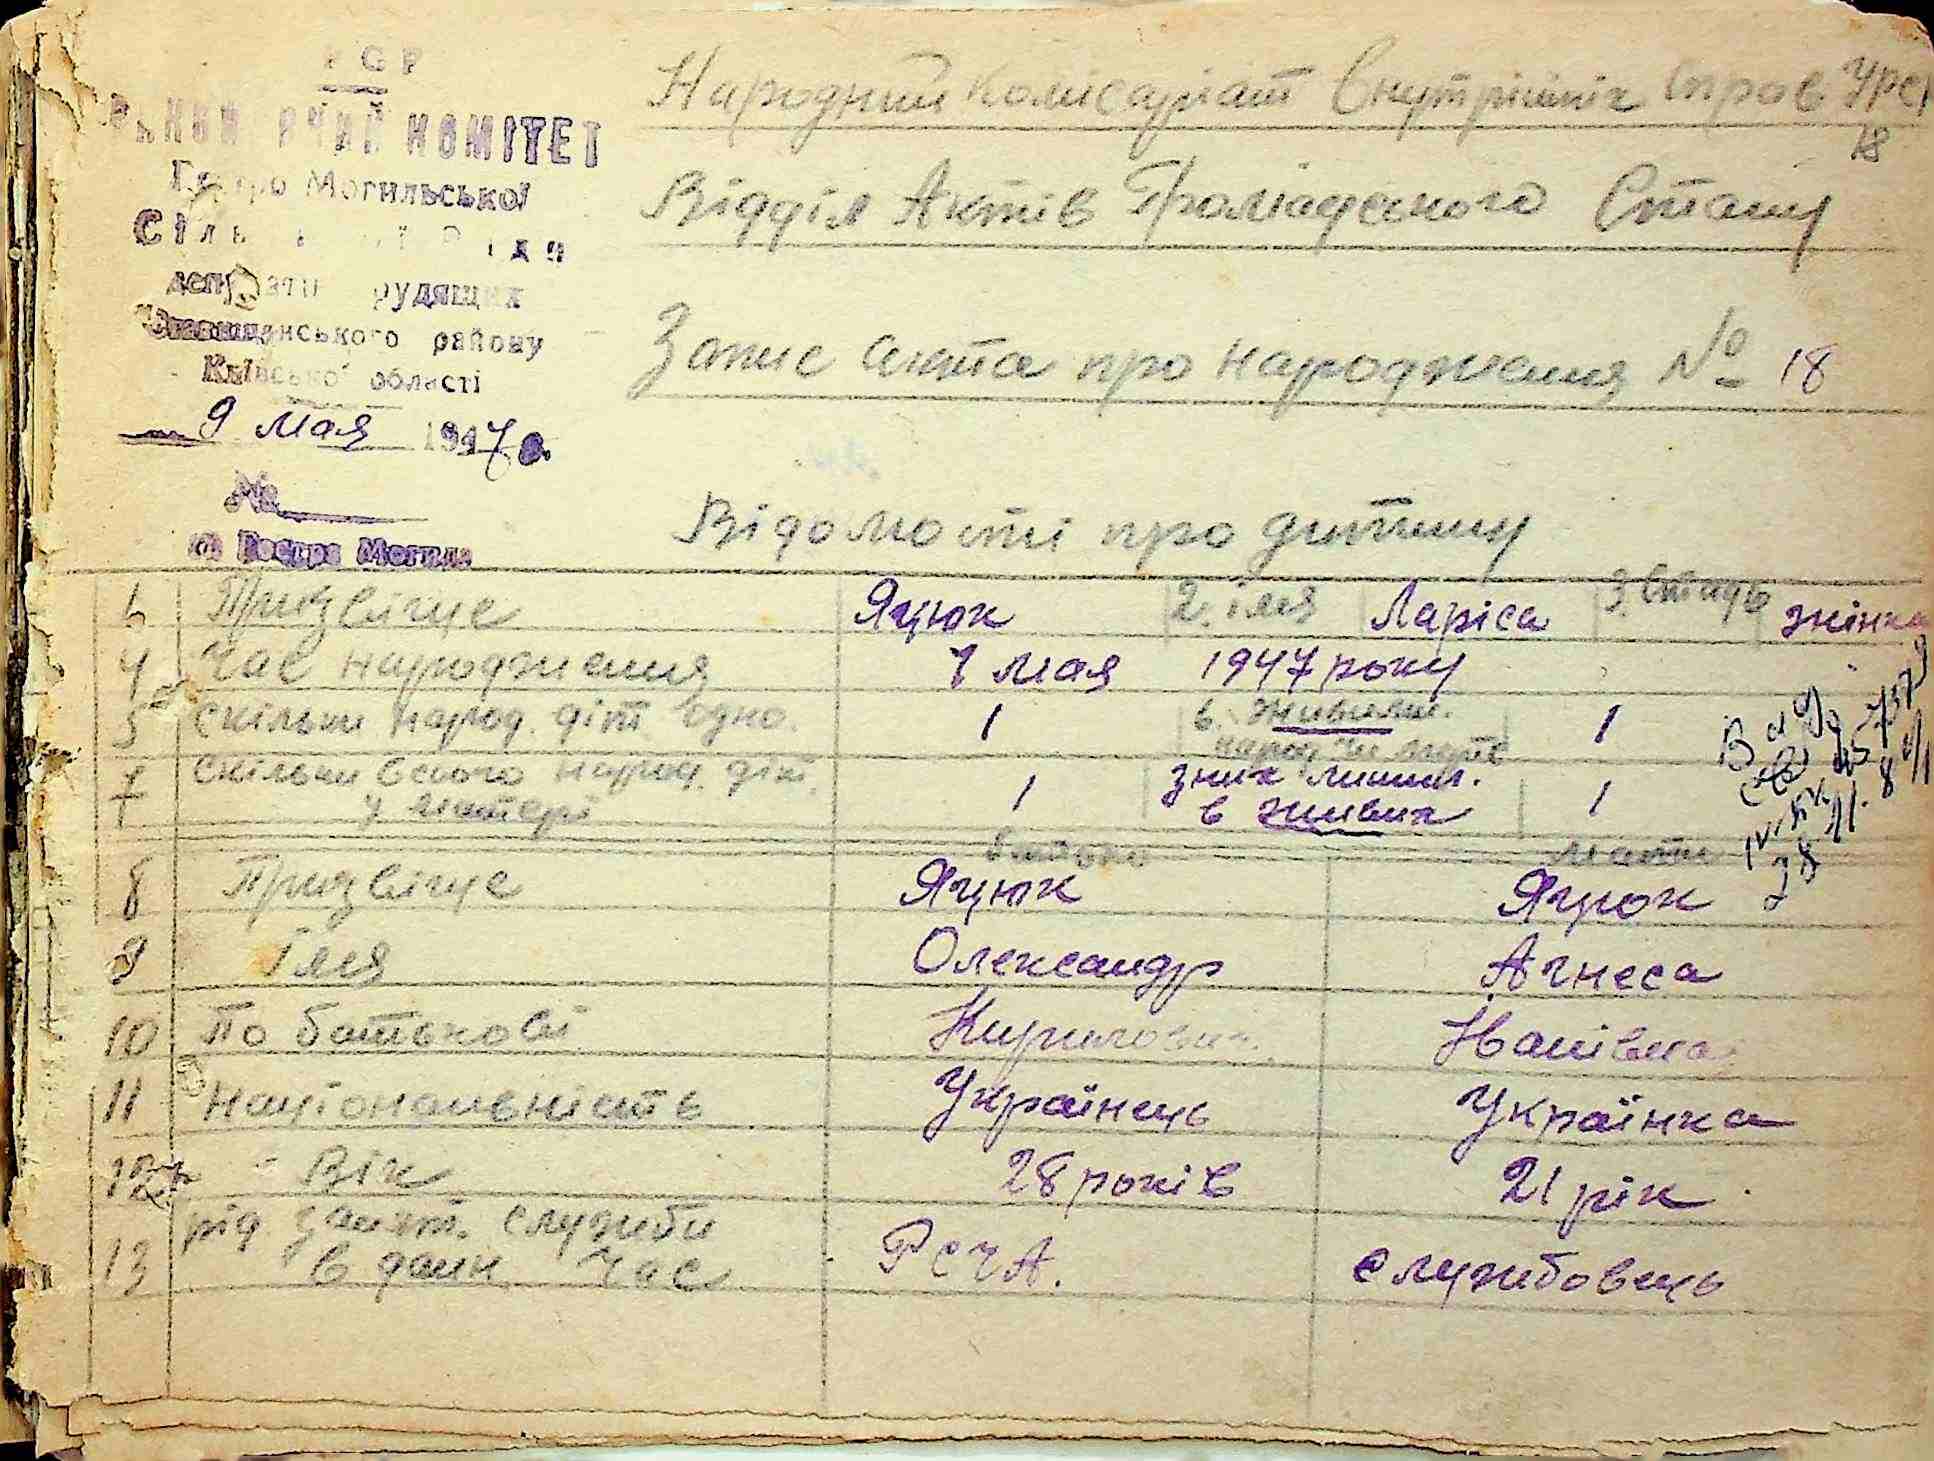 КОМІТЕТ
Гостро Могильської
району
Київської області
9 мая 1947 р.
№
Гостра Могила
Народний комісаріат внутрішніх справ УРСР
18
Відділ Актів Громадського Стану
Запис акта про народження № 18
Відомості про дитину
1. Призвіще Яцюк 2. імя Ларіса 3. стать жінка
4 Час народження 1 мая 1947 року
5 скільки народ. діт. одно. 1 6. живими.
народ. чи мертв 1
7 скільки всього народ. діт. 1 з них лишил. 1
у матері в живих
батько мати
8 Призвіще Яцюк Яцюк
9 Імя Олександр Агнеса
10 По батькові Кирилович Іванівна
11 Національність Українець Українка
12 Вік 28 років 21 рік
рід занят. служби
13 в дани час РСЧА. службовець